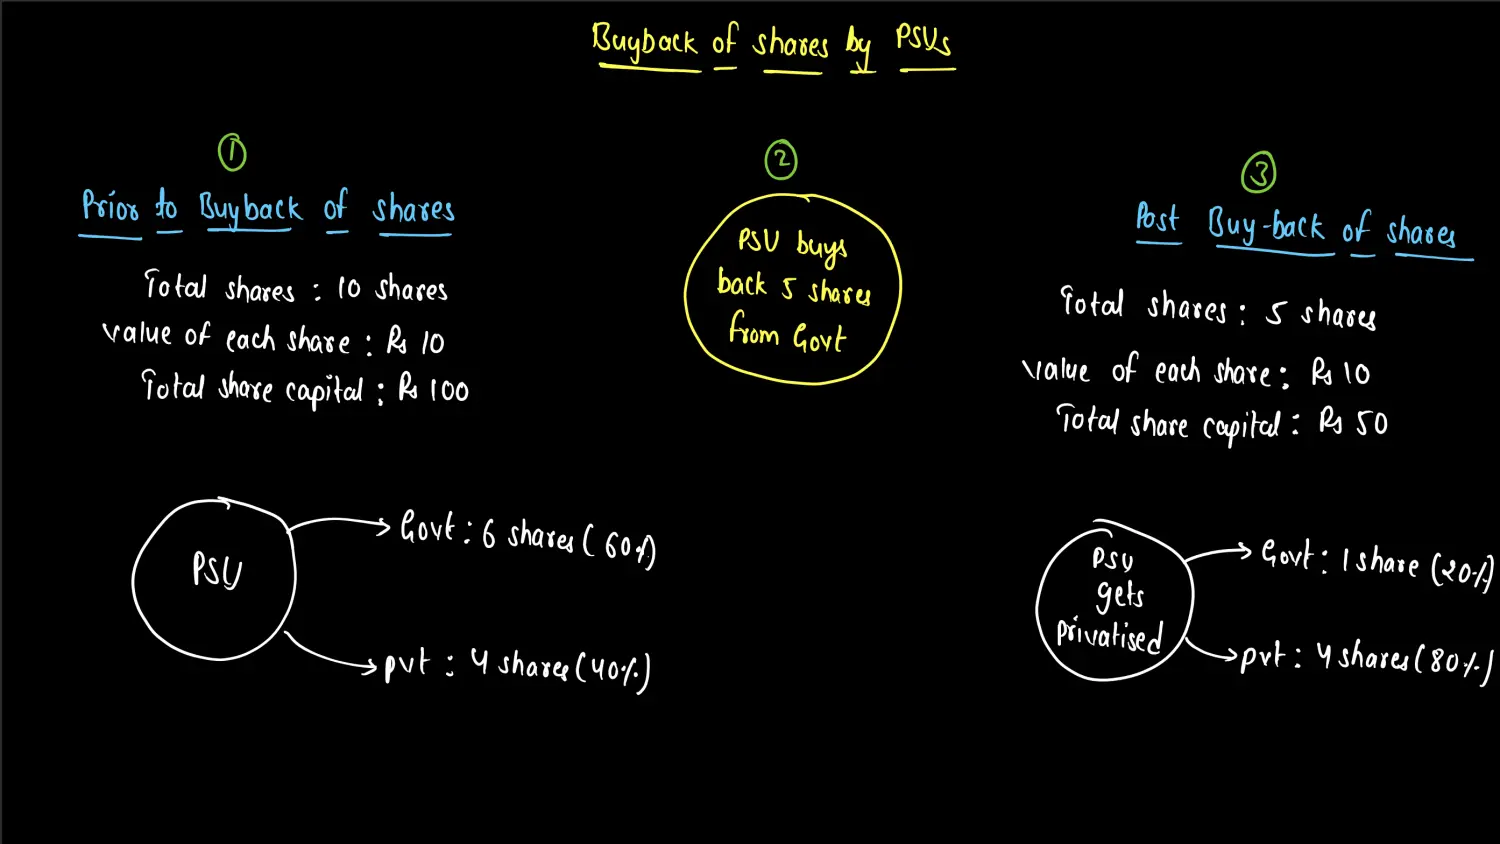 Buyback of shares by PSUs
1
Prior to Buyback of shares
Total shares : 10 shares
value of each share : Rs 10
Total share capital : Rs 100
PSU
Govt : 6 shares (60%)
pvt : 4 shares (40%)
2
PSU buys
back 5 shares
from Govt
3
Post Buy-back of shares
Total shares : 5 shares
value of each share : Rs 10
Total share capital : Rs 50
PSU
gets
privatised
Govt : 1 share (20%)
pvt : 4 shares (80%)